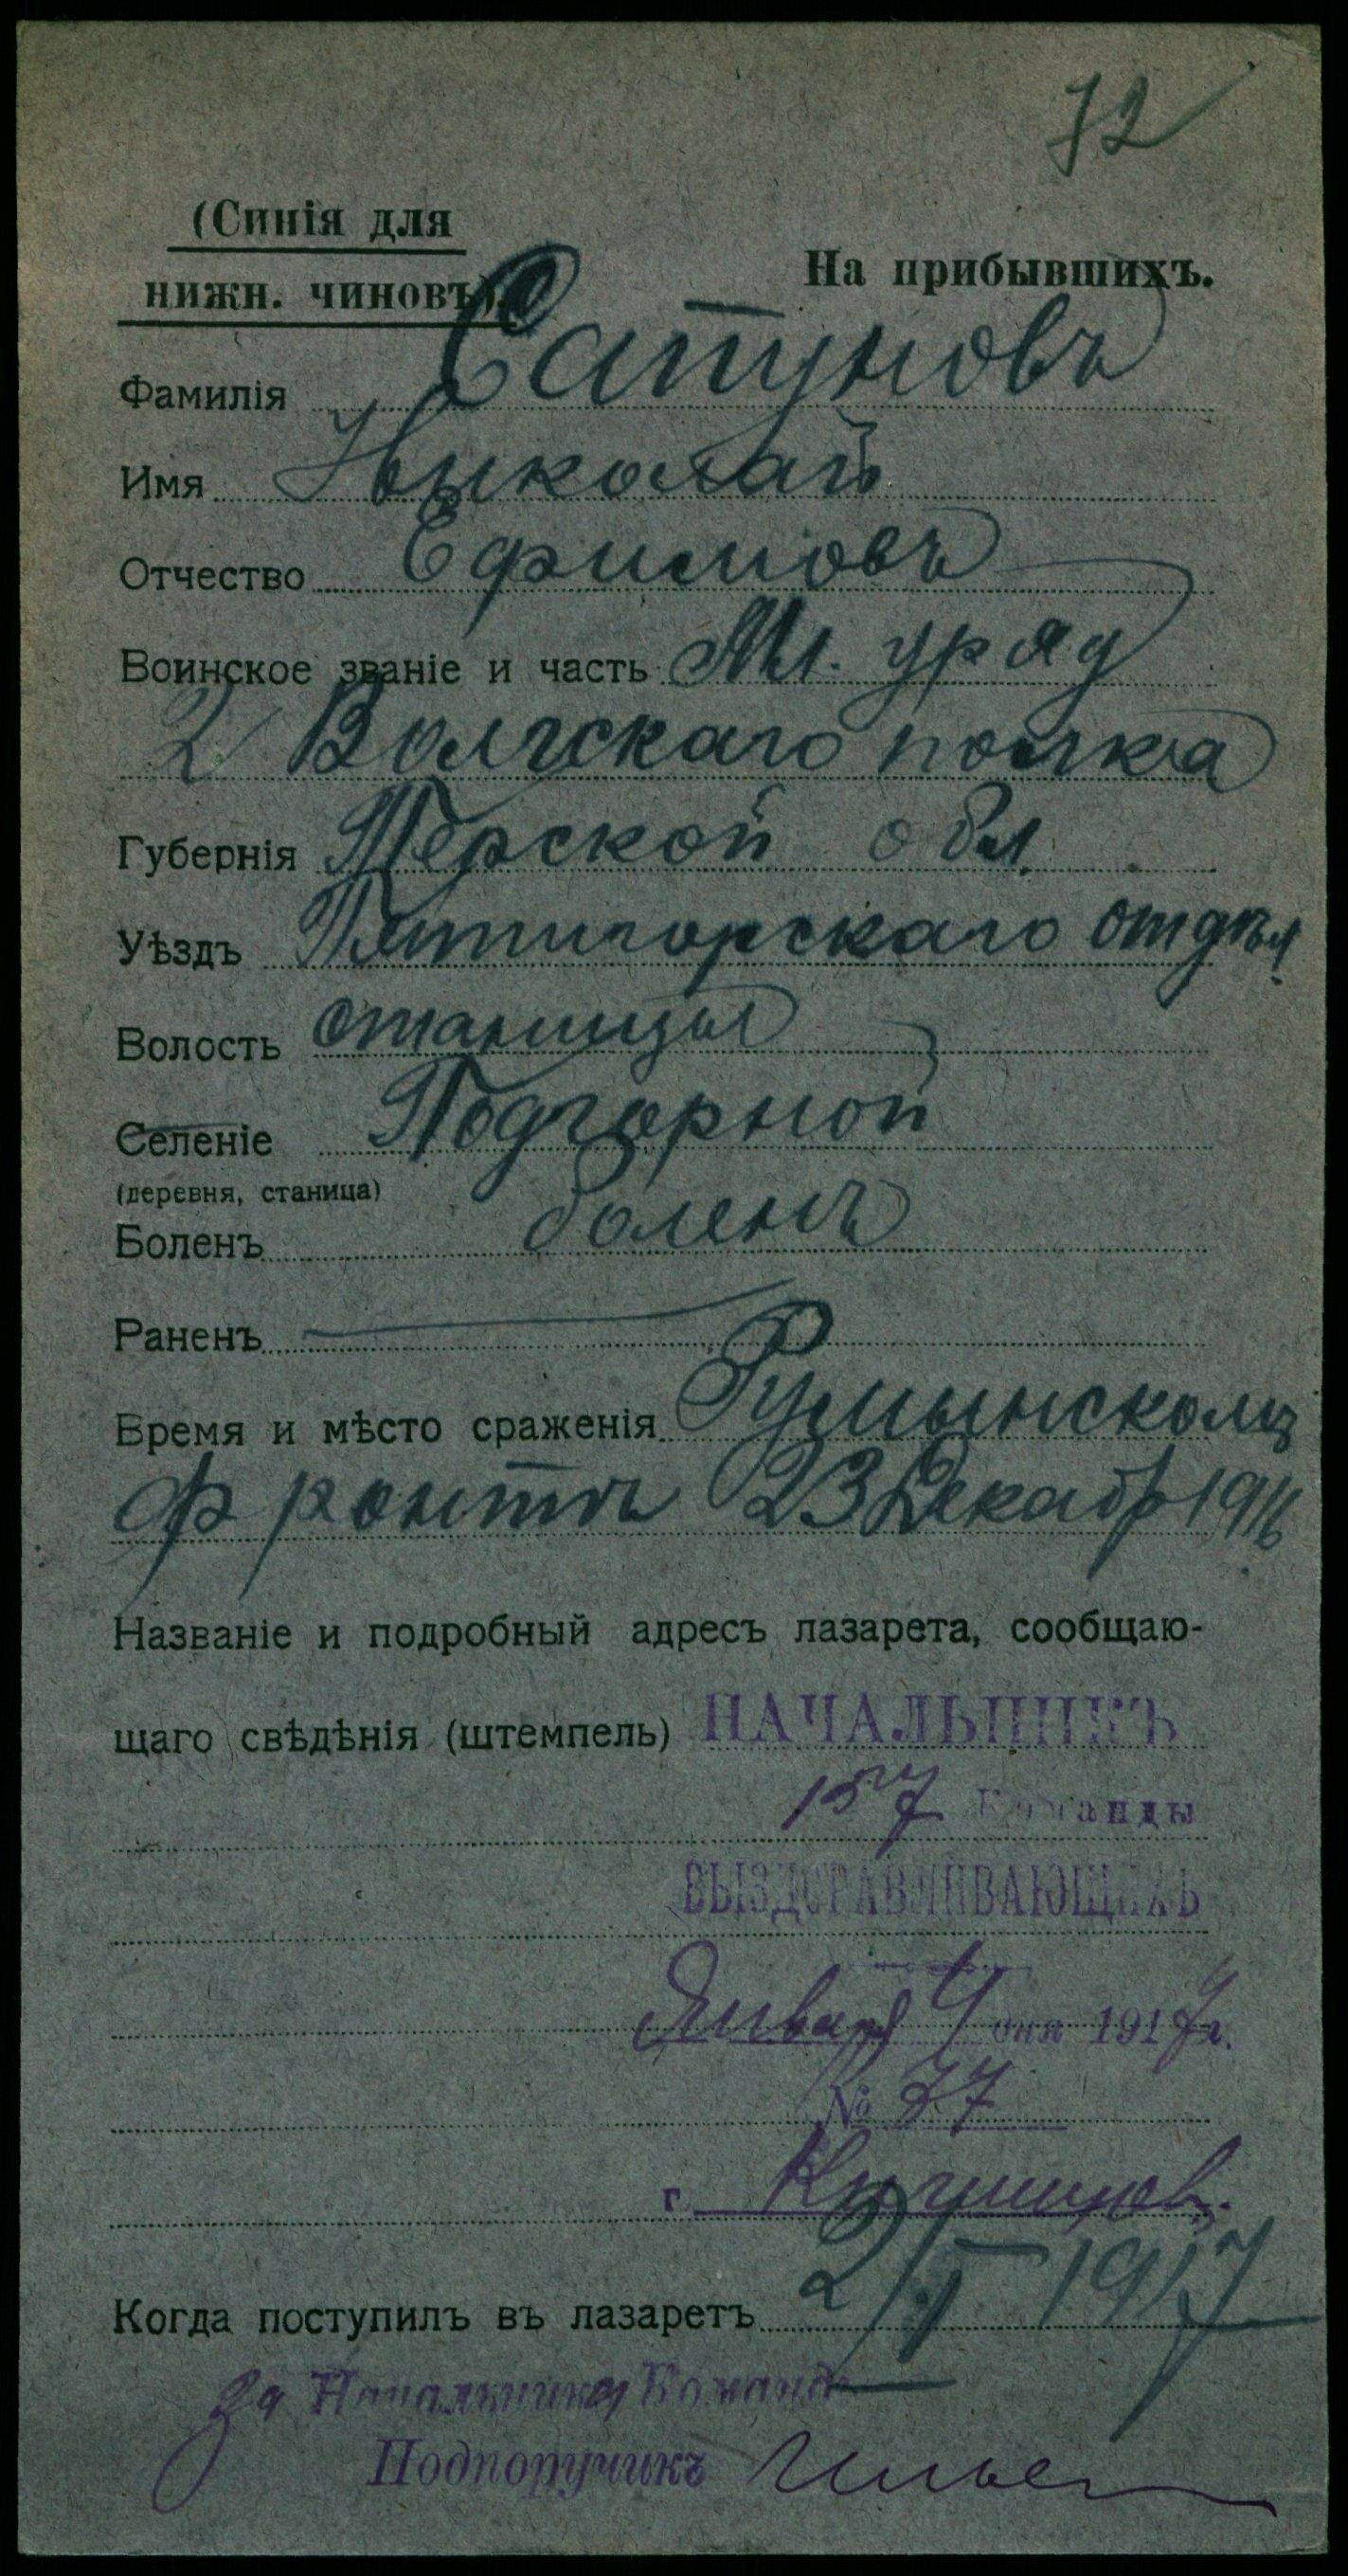 72
(Синія для
нижн. чиновъ).
На прибывшихъ.
Фамилія Сапуновъ
Имя Николай
Отчество Ефимовъ
Воинское званіе и часть Мл. уряд
2 Волгскаго полка
Губернія Терской обл.
Уѣздъ Пятигорскаго отдѣл.
Волость станицы
Селеніе Подгорной
(деревня, станица)
Боленъ боленъ
Раненъ
Время и мѣсто сраженія Румынскомъ
фронтѣ 23 Декабр 1916
Названіе и подробный адресъ лазарета, сообщаю-
щаго свѣдѣнія (штемпель) НАЧАЛЬНИКЪ
157 Команды
ВЫЗДОРАВЛИВАЮЩИХЪ
Января 4 дня 1917 г.
№ 37
г. Кишинев.
Когда поступилъ въ лазаретъ 2/I 1917
За Начальника Команд
Подпоручикъ